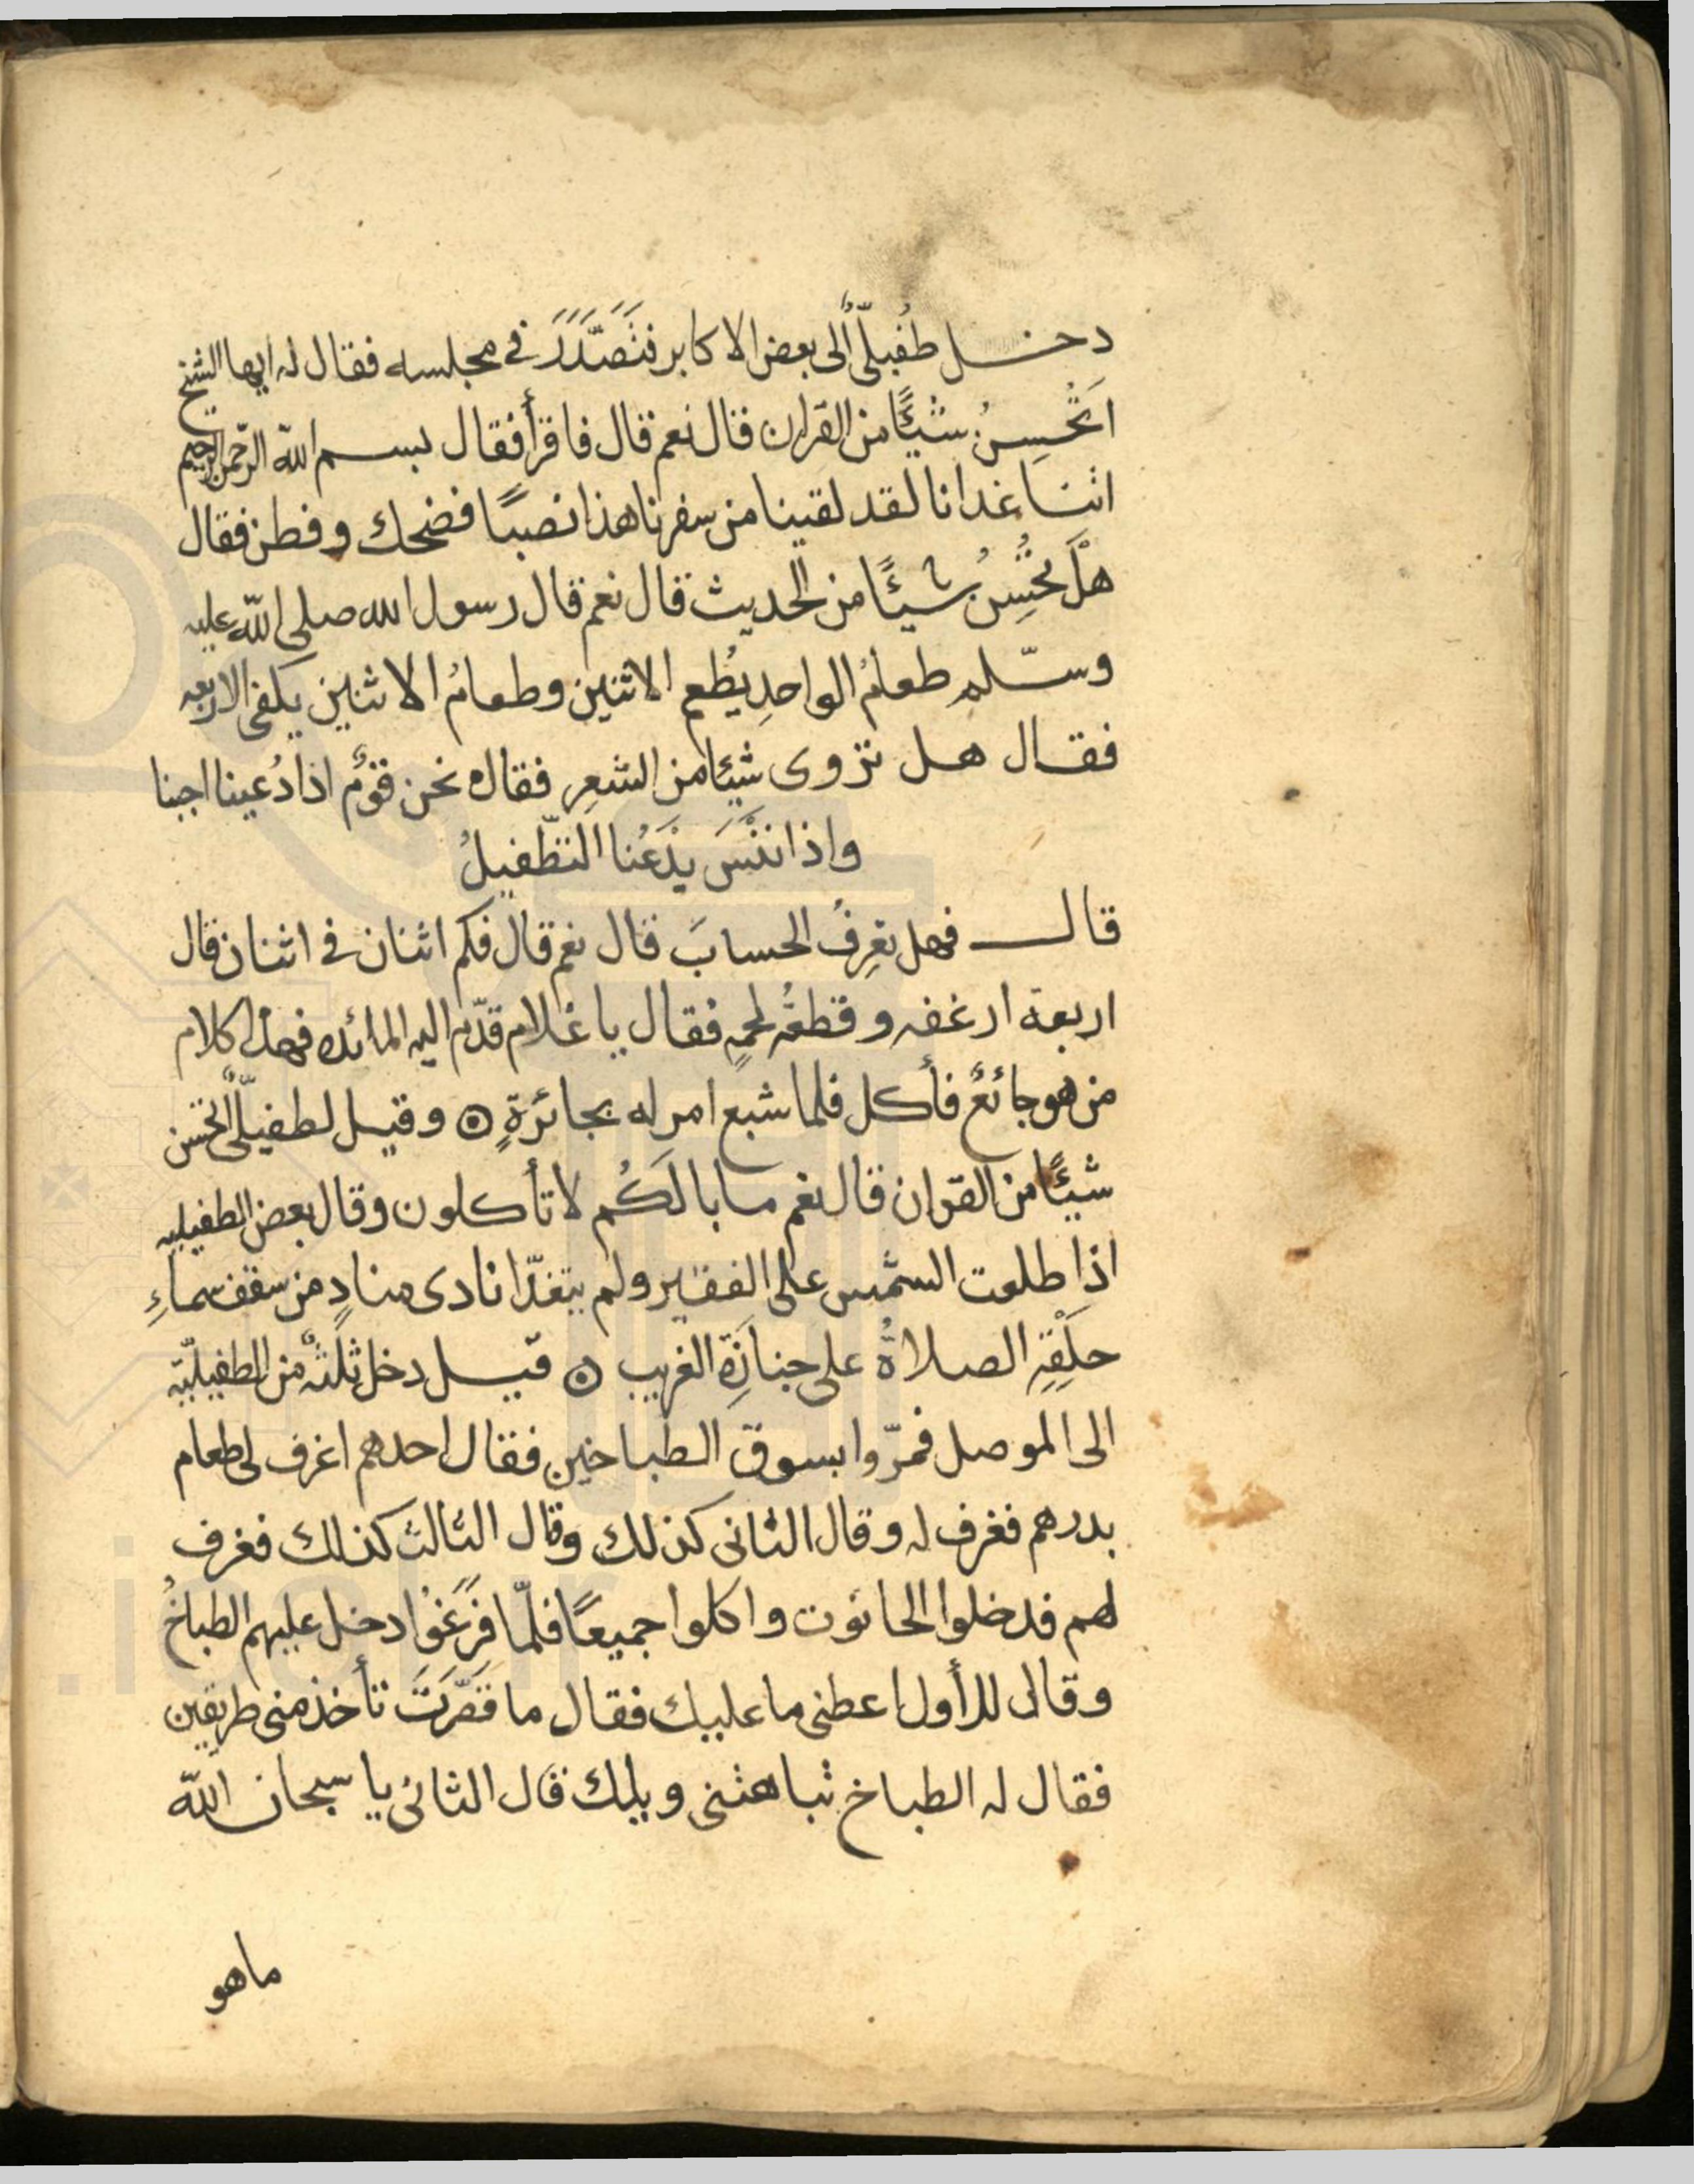 دخل طُفيلىٌّ الى بعض الاكابر فتَصَدَّرَ فى مجلسه فقال له ايها الشيخ
اتُحْسِنُ شيئًا من القران قال نعم قال فاقرأ فقال بسم الله الرحمن الرحيم
اتنا غدانا لقد لقينا من سفرنا هذا نصبًا فضحك وفطن فقال
هَلْ تُحْسِنُ شيئًا من الحديث قال نعم قال رسول الله صلى الله عليه
وسلم طعامُ الواحدِ يُطعم الاثنين وطعامُ الاثنين يكفى الاربعه
فقال هل تروى شيئا من الشعرِ فقال نحن قومٌ اذا دُعينا اجبنا
واذا نُنْسَ يَدْعُنا التطّفيلُ
قال فهل تعرِفُ الحسابَ قال نعم قال فكم اثنان فى اثنان قال
اربعة ارغفه وقطعةُ لحمٍ فقال يا غلام قدّم اليه المائده فهذا كلام
من هو جائعٌ فأكل فلما شبع امر له بجائزةٍ ۞ وقيل لطفيلىٍّ اتحسن
شيئًا من القران قال نعم ما بالَكُم لا تأكلون وقال بعض الطفيليه
اذا طلعت الشمس على الفقير ولم يتغدّا نادى منادٍ من سقف سماءِ
حلقِهِ الصلاةُ على جنازةِ الغريب ۞ قيل دخل ثلثةٌ من الطفيليّة
الى الموصل فمرّوا بسوق الطباخين فقال احدهم اغرف لى طعام
بدرهم فغرف له وقال الثانى كذلك وقال الثالث كذلك فغرف
لهم فدخلوا الحانوت واكلوا جميعًا فلمّا فَرَغوُا دخل عليهم الطباخُ
وقال للأول اعطنى ما عليك فقال ما قَصَّرتَ تأخذ منى طريقين
فقال له الطباخ تباهتنى ويلك قال الثانى يا سبحان الله
ماهو